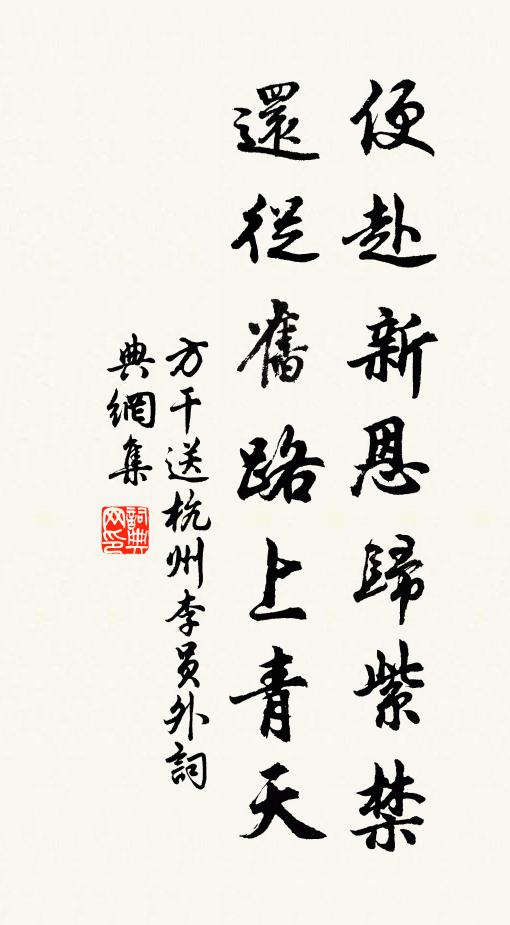 便赴新恩歸紫禁
還從舊路上青天
方干送杭州李员外詞
典網集
詞典网印